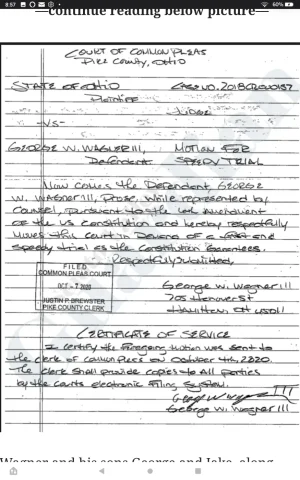 8:57
60%
—continue reading below picture—
COURT OF COMMON PLEAS
PIKE COUNTY, OHIO
STATE OF OHIO CASE NO. 2018CR000157
Plaintiff
JUDGE
-VS-
GEORGE W. WAGNER III, MOTION FOR
Defendant. SPEEDY TRIAL
Now comes the Defendant, GEORGE
W. WAGNER III, Prose, while represented by
Counsel, pursuant to the Amendment
of the US Constitution and hereby respectfully
moves this court in Demand of a fast and
speedy trial as the Constitution Garantees.
Respectfully Submitted,
FILED
COMMON PLEAS COURT
OCT -7 2020
JUSTIN P. BREWSTER
PIKE COUNTY CLERK
George W. Wagner III
705 Hanover St
Hamilton, OH 45011
CERTIFICATE OF SERVICE
I certify the Foregoing motion was sent to
the clerk of common Pleas on October 4th, 2020.
The clerk shall provide copies to All parties
by the courts electronic Filing System.
George W. Wagner III
Wagner and his sons George and Jake, along